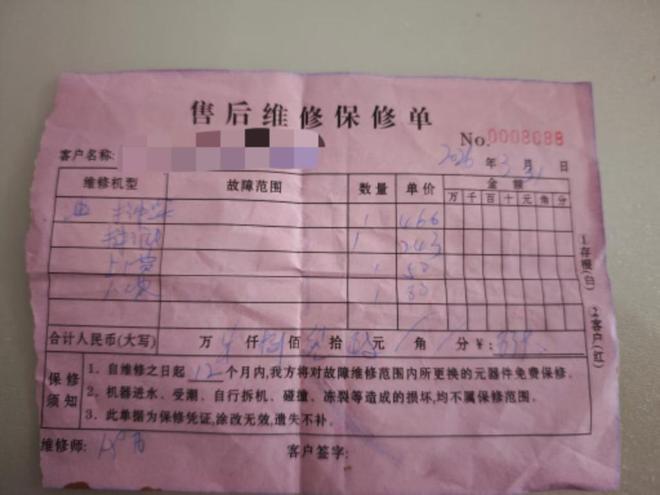 售后维修保修单
No.0008088
客户名称: 2026年3月31日
维修机型 故障范围 数量 单价 金额
万 千 百 十 元 角 分
1 466
1 243
上门费 1 50
人工费 1
合计人民币(大写) 万 仟 佰 拾 元 角 分¥:
保修须知
1、自维修之日起12个月内,我方将对故障维修范围内所更换的元器件免费保修。
2、机器进水、受潮、自行拆机、碰撞、冻裂等造成的损坏,均不属保修范围。
3、此单据为保修凭证,涂改无效,遗失不补。
①存根(白) ②客户(红)
维修师: 客户签字: